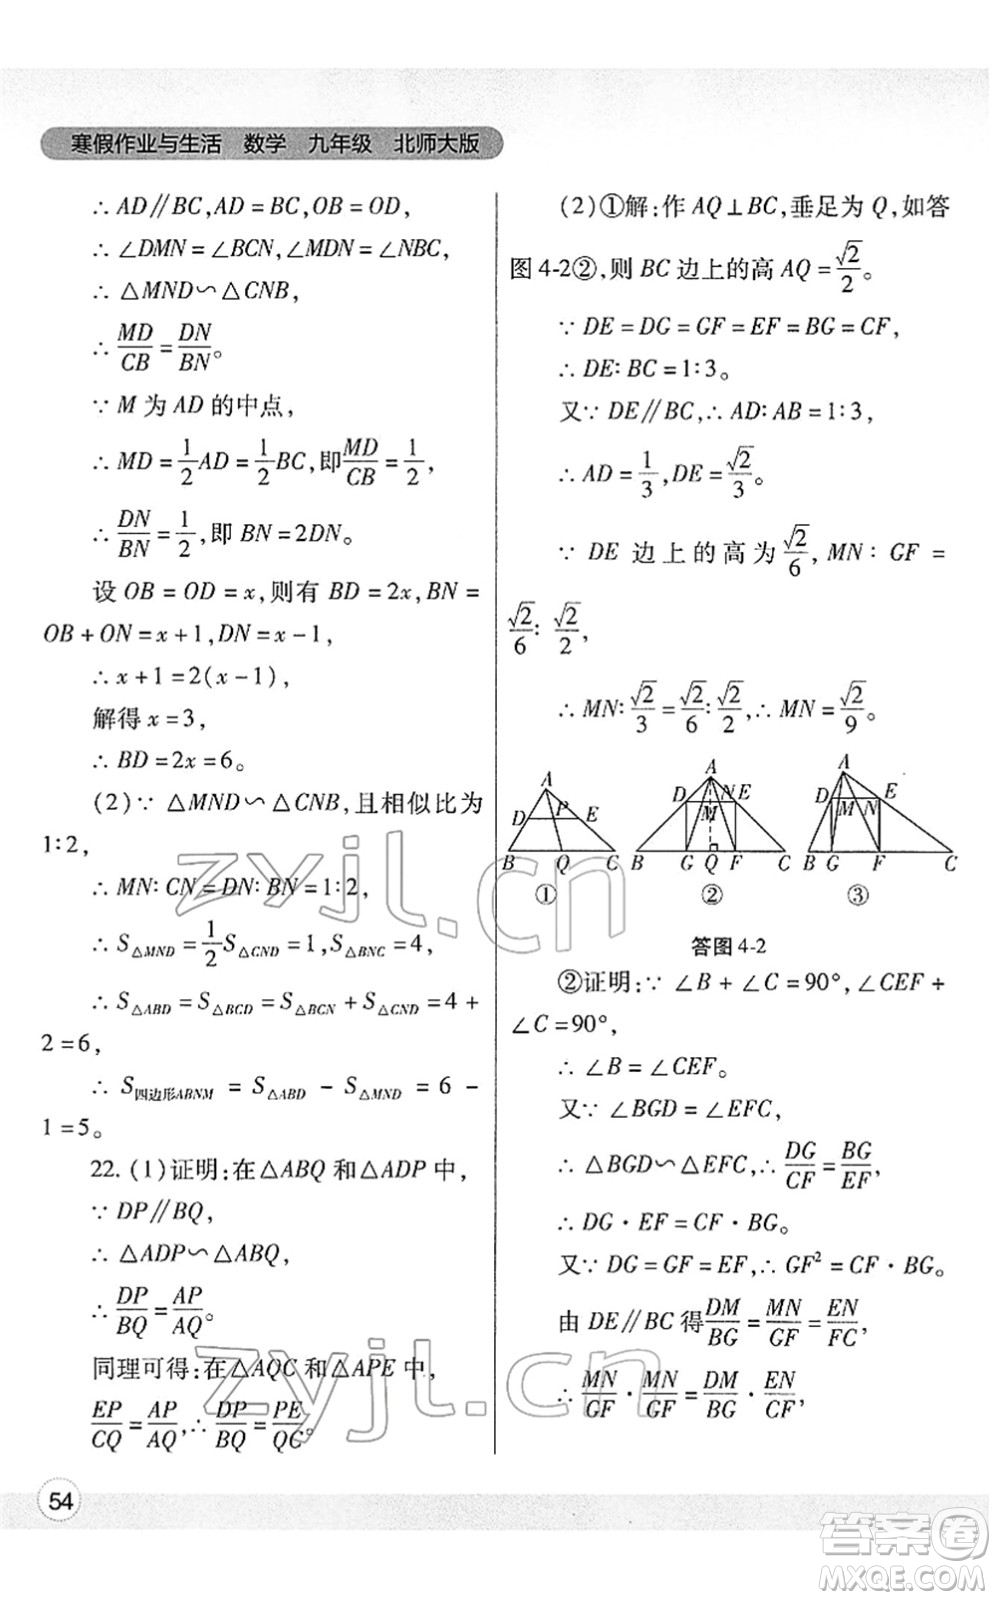 寒假作业与生活 数学 九年级 北师大版
∴AD∥BC,AD=BC,OB=OD,
∴∠DMN=∠BCN,∠MDN=∠NBC,
∴△MND∽△CNB,
∴MD/CB=DN/BN。
∵M为AD的中点,
∴MD=1/2AD=1/2BC,即MD/CB=1/2,
∴DN/BN=1/2,即BN=2DN。
设OB=OD=x,则有BD=2x,BN=
OB+ON=x+1,DN=x-1,
∴x+1=2(x-1),
解得x=3,
∴BD=2x=6。
(2)∵△MND∽△CNB,且相似比为
1∶2,
∴MN∶CN=DN∶BN=1∶2,
∴S△MND=1/2S△CND=1,S△BNC=4,
∴S△ABD=S△BCD=S△BCN+S△CND=4+
2=6,
∴S四边形ABNM=S△ABD-S△MND=6-
1=5。
22.(1)证明:在△ABQ和△ADP中,
∵DP∥BQ,
∴△ADP∽△ABQ,
∴DP/BQ=AP/AQ。
同理可得:在△AQC和△APE中,
EP/CQ=AP/AQ,∴DP/BQ=PE/QC。
(2)①解:作AQ⊥BC,垂足为Q,如答
图4-2②,则BC边上的高AQ=√2/2。
∵DE=DG=GF=EF=BG=CF,
∴DE∶BC=1∶3。
又∵DE∥BC,∴AD∶AB=1∶3,
∴AD=1/3,DE=√2/3。
∵DE边上的高为√2/6,MN∶GF=
√2/6∶√2/2,
∴MN∶√2/3=√2/6∶√2/2,∴MN=√2/9。
A D P E B Q C
①
A D N E M B G Q F C
②
A D E M N B G F C
③
答图4-2
②证明:∵∠B+∠C=90°,∠CEF+
∠C=90°,
∴∠B=∠CEF。
又∵∠BGD=∠EFC,
∴△BGD∽△EFC,∴DG/CF=BG/EF,
∴DG·EF=CF·BG。
又∵DG=GF=EF,∴GF²=CF·BG。
由DE∥BC得DM/BG=MN/GF=EN/FC,
∴MN/GF·MN/GF=DM/BG·EN/CF,
54
zyjl.cn
zyjl.cn
答案圈
MXQE.COM